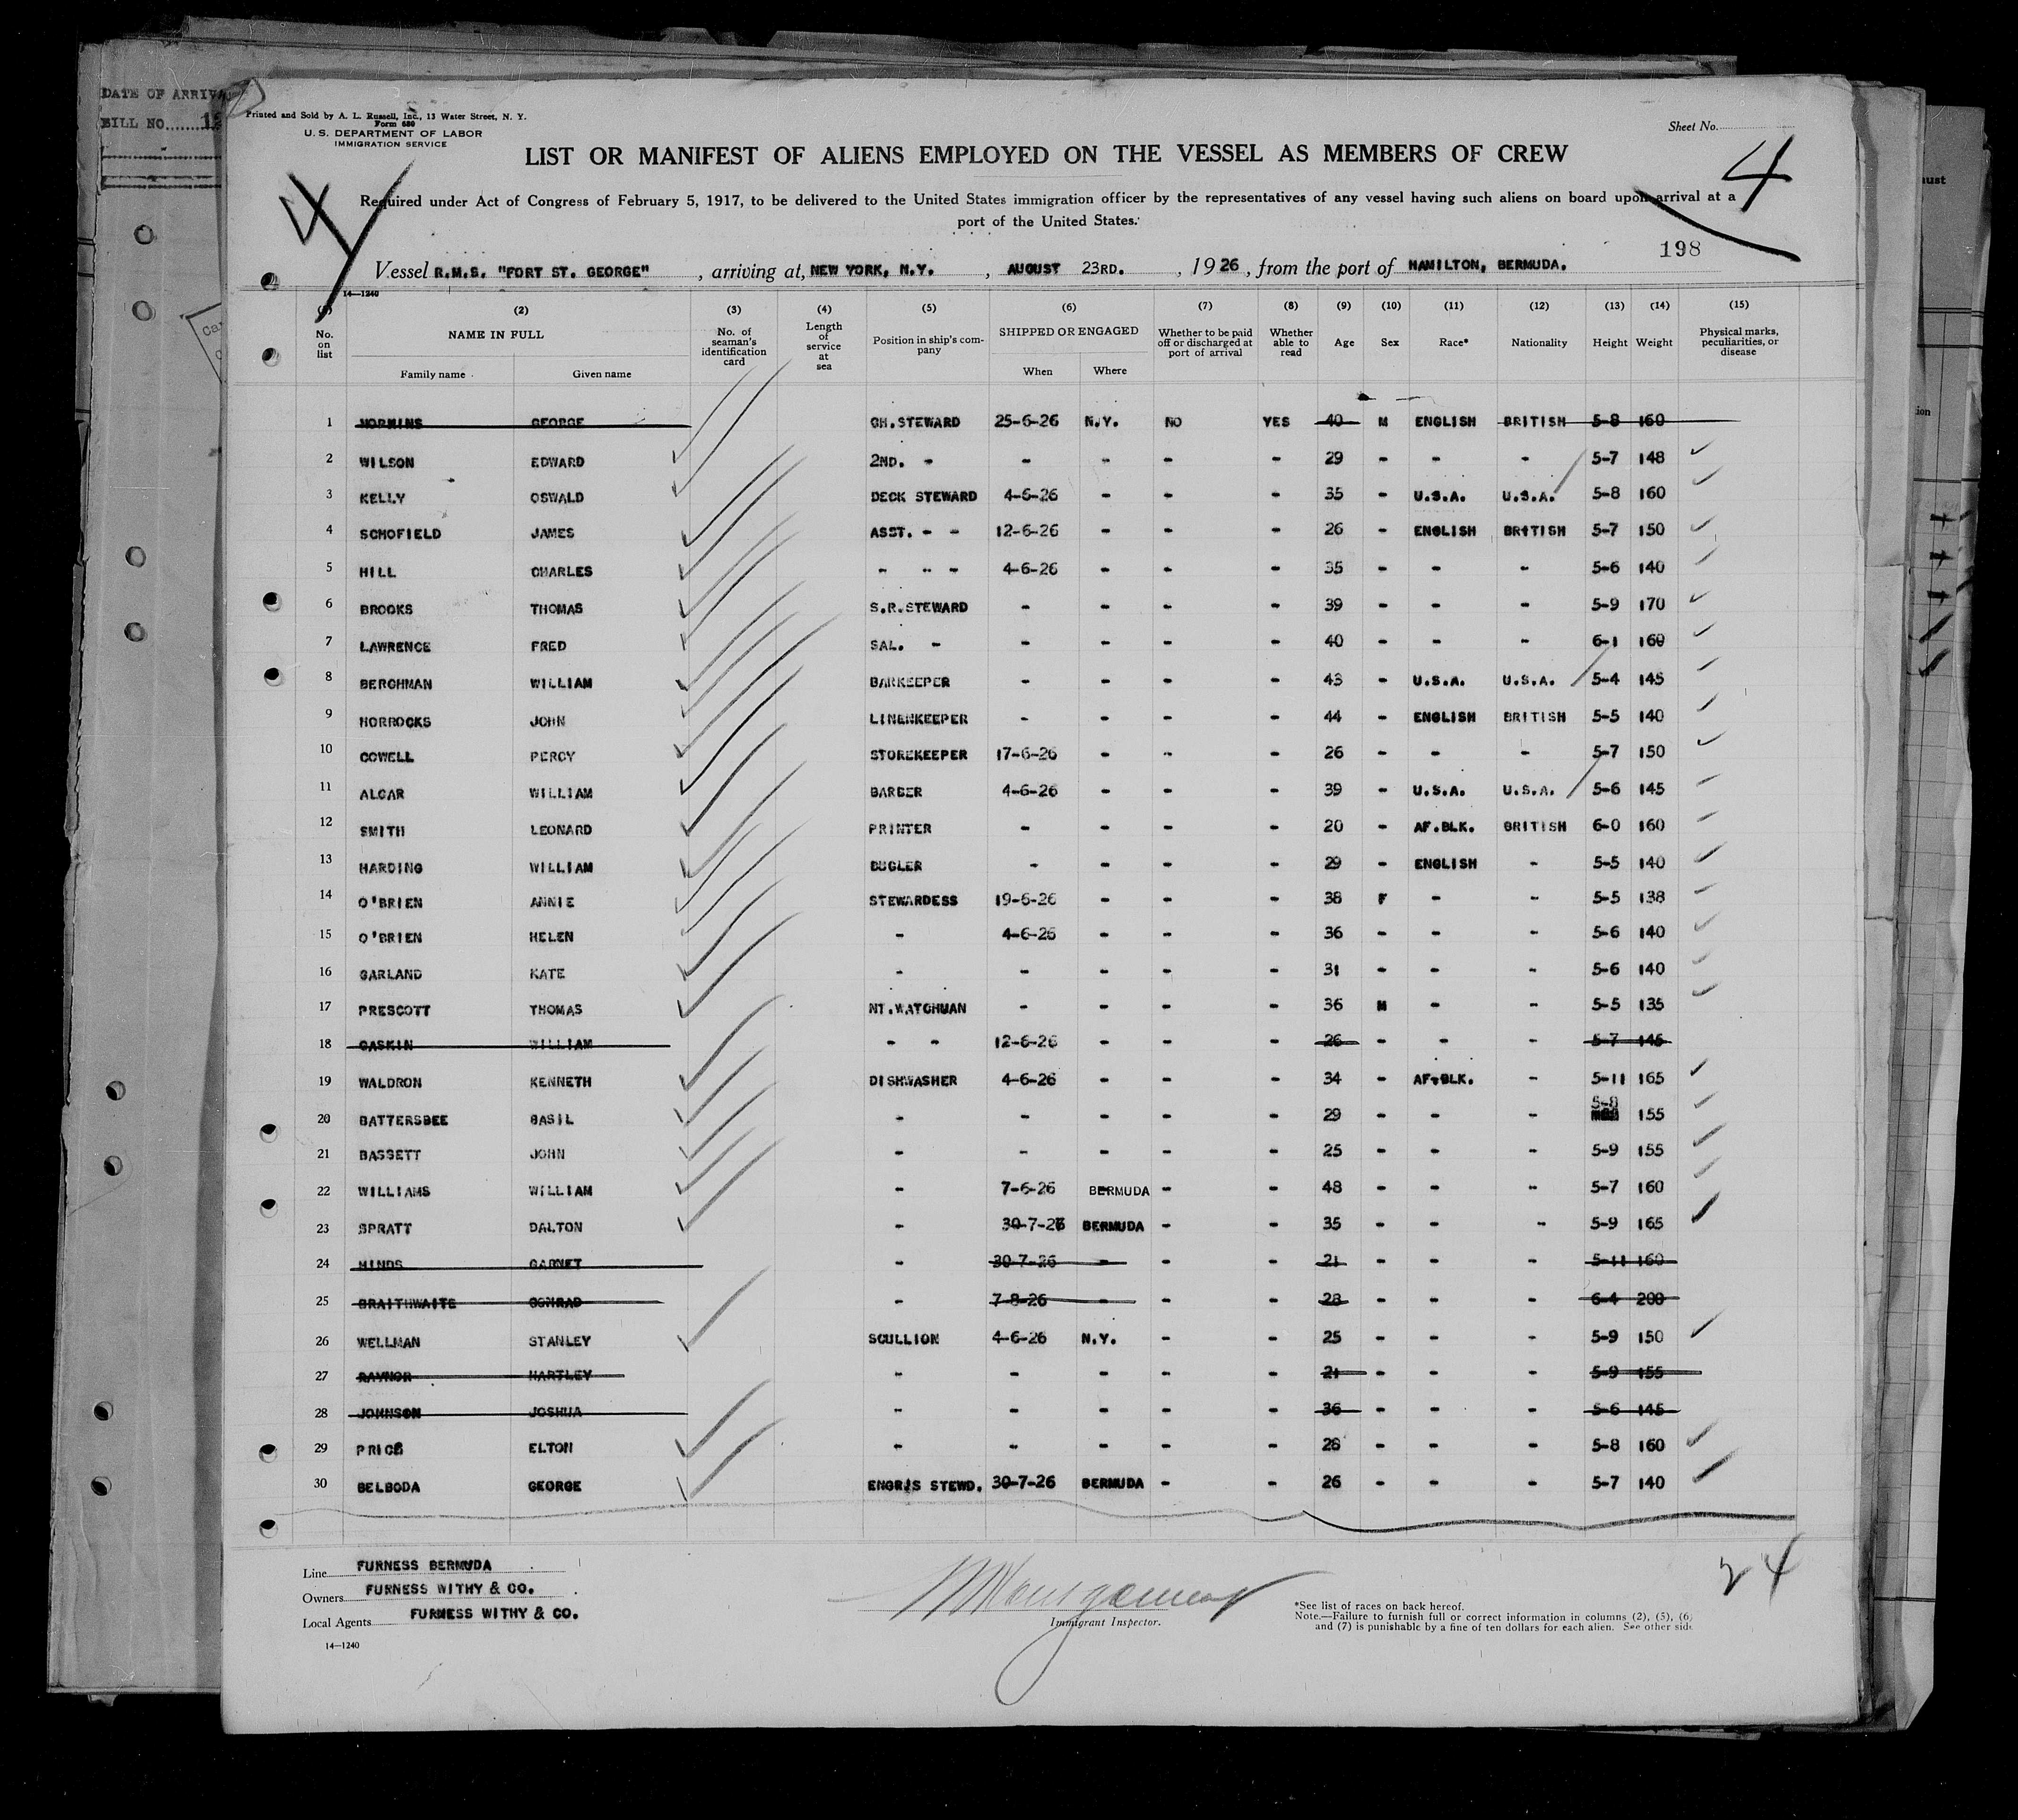 DATE OF ARRIVA
BILL NO.
Printed and Sold by A. L. Russell, Inc., 13 Water Street, N. Y.
Form 680
U. S. DEPARTMENT OF LABOR
IMMIGRATION SERVICE
Sheet No.
4
4
LIST OR MANIFEST OF ALIENS EMPLOYED ON THE VESSEL AS MEMBERS OF CREW
Required under Act of Congress of February 5, 1917, to be delivered to the United States immigration officer by the representatives of any vessel having such aliens on board upon arrival at a
port of the United States.
198
Vessel R.M.S. "FORT ST. GEORGE", arriving at, NEW YORK, N.Y., AUGUST 23RD., 1926, from the port of HAMILTON, BERMUDA.
14—1240
(2) (3) (4) (5) (6) (7) (8) (9) (10) (11) (12) (13) (14) (15)
No. on list NAME IN FULL Family name Given name No. of seaman's identification card Length of service at sea Position in ship's company SHIPPED OR ENGAGED When Where Whether to be paid off or discharged at port of arrival Whether able to read Age Sex Race* Nationality Height Weight Physical marks, peculiarities, or disease
1 GEORGE CH.STEWARD 25-6-26 N.Y. NO YES 40 M ENGLISH BRITISH 5-8 160
2 WILSON EDWARD 2ND. - - - - - 29 - - - 5-7 148
3 KELLY OSWALD DECK STEWARD 4-6-26 - - - 35 - U.S.A. U.S.A. 5-8 160
4 SCHOFIELD JAMES ASST. - - 12-6-26 - - - 26 - ENGLISH BRITISH 5-7 150
5 HILL CHARLES - - - 4-6-26 - - - 35 - - - 5-6 140
6 BROOKS THOMAS S.R.STEWARD - - - - 39 - - - 5-9 170
7 LAWRENCE FRED SAL. - - - - - 40 - - - 6-1 160
8 BERCHMAN WILLIAM BARKEEPER - - - - 43 - U.S.A. U.S.A. 5-4 145
9 HORROCKS JOHN LINENKEEPER - - - - 44 - ENGLISH BRITISH 5-5 140
10 COWELL PERCY STOREKEEPER 17-6-26 - - - 26 - - - 5-7 150
11 ALGAR WILLIAM BARBER 4-6-26 - - - 39 - U.S.A. U.S.A. 5-6 145
12 SMITH LEONARD PRINTER - - - - 20 - AF.BLK. BRITISH 6-0 160
13 HARDING WILLIAM BUGLER - - - - 29 - ENGLISH - 5-5 140
14 O'BRIEN ANNIE STEWARDESS 19-6-26 - - - 38 F - - 5-5 138
15 O'BRIEN HELEN - 4-6-26 - - - 36 - - - 5-6 140
16 GARLAND KATE - - - - - 31 - - - 5-6 140
17 PRESCOTT THOMAS NT.WATCHMAN - - - - 36 M - - 5-5 135
18 GASKIN WILLIAM - - 12-6-26 - - - 26 - - - 5-7 145
19 WALDRON KENNETH DISHWASHER 4-6-26 - - - 34 - AF.BLK. - 5-11 165
20 BATTERSBEE BASIL - - - - - 29 - - - 5-8 155
21 BASSETT JOHN - - - - - 25 - - - 5-9 155
22 WILLIAMS WILLIAM - 7-6-26 BERMUDA - - 48 - - - 5-7 160
23 SPRATT DALTON - 30-7-26 BERMUDA - - 35 - - - 5-9 165
24 HINDS GARNET - 30-7-26 - - - 21 - - - 5-11 160
25 BRAITHWAITE CONRAD - 7-8-26 - - - 28 - - - 6-4 200
26 WELLMAN STANLEY SCULLION 4-6-26 N.Y. - - 25 - - - 5-9 150
27 RAYNOR HARTLEY - - - - - 21 - - - 5-9 155
28 JOHNSON JOSHUA - - - - - 36 - - - 5-6 145
29 PRICE ELTON - - - - - 28 - - - 5-8 160
30 BELBODA GEORGE ENGR'S STEWD. 30-7-26 BERMUDA - - 26 - - - 5-7 140
24
Line FURNESS BERMUDA
Owners FURNESS WITHY & CO.
Local Agents FURNESS WITHY & CO.
14—1240
Montgomery
Immigrant Inspector.
*See list of races on back hereof.
Note.—Failure to furnish full or correct information in columns (2), (5), (6)
and (7) is punishable by a fine of ten dollars for each alien. See other side